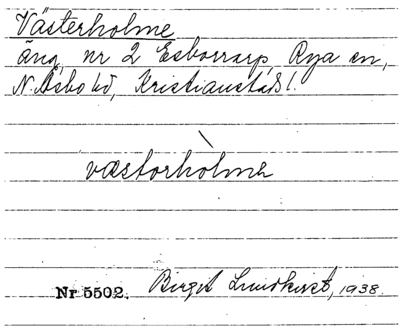 Västerholme
äng, nr 2 Esborrarp, Rya sn,
N. Åsbo hd, Kristianstads l.
væstorhòlmə
Nr 5502. Birgit Lundkvist, 1938.